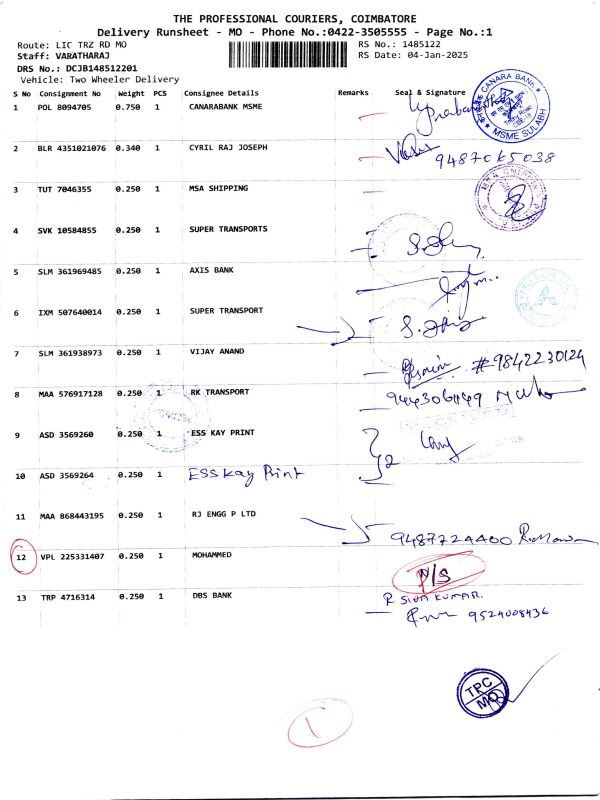 THE PROFESSIONAL COURIERS, COIMBATORE
Delivery Runsheet - MO - Phone No.:0422-3505555 - Page No.:1
Route: LIC TRZ RD MO
RS No.: 1485122
Staff: VARATHARAJ
RS Date: 04-Jan-2025
DRS No.: DCJB148512201
Vehicle: Two Wheeler Delivery
S No Consignment No Weight PCS Consignee Details Remarks Seal & Signature
1 POL 8094705 0.750 1 CANARABANK MSME
CANARA BANK
MSME SULABH
2 BLR 4351021076 0.340 1 CYRIL RAJ JOSEPH
3 TUT 7046355 0.250 1 MSA SHIPPING
4 SVK 10584855 0.250 1 SUPER TRANSPORTS
5 SLM 361969485 0.250 1 AXIS BANK
6 IXM 507640014 0.250 1 SUPER TRANSPORT
7 SLM 361938973 0.250 1 VIJAY ANAND #9842230124
8 MAA 576917128 0.250 1 RK TRANSPORT
9 ASD 3569260 0.250 1 ESS KAY PRINT 2
10 ASD 3569264 0.250 1 ESS Kay Print
11 MAA 868443195 0.250 1 RJ ENGG P LTD 9487724400
12 VPL 225331407 0.250 1 MOHAMMED N/S
13 TRP 4716314 0.250 1 DBS BANK R SIVA KUMAR.
9524008436
TPC
MO
1